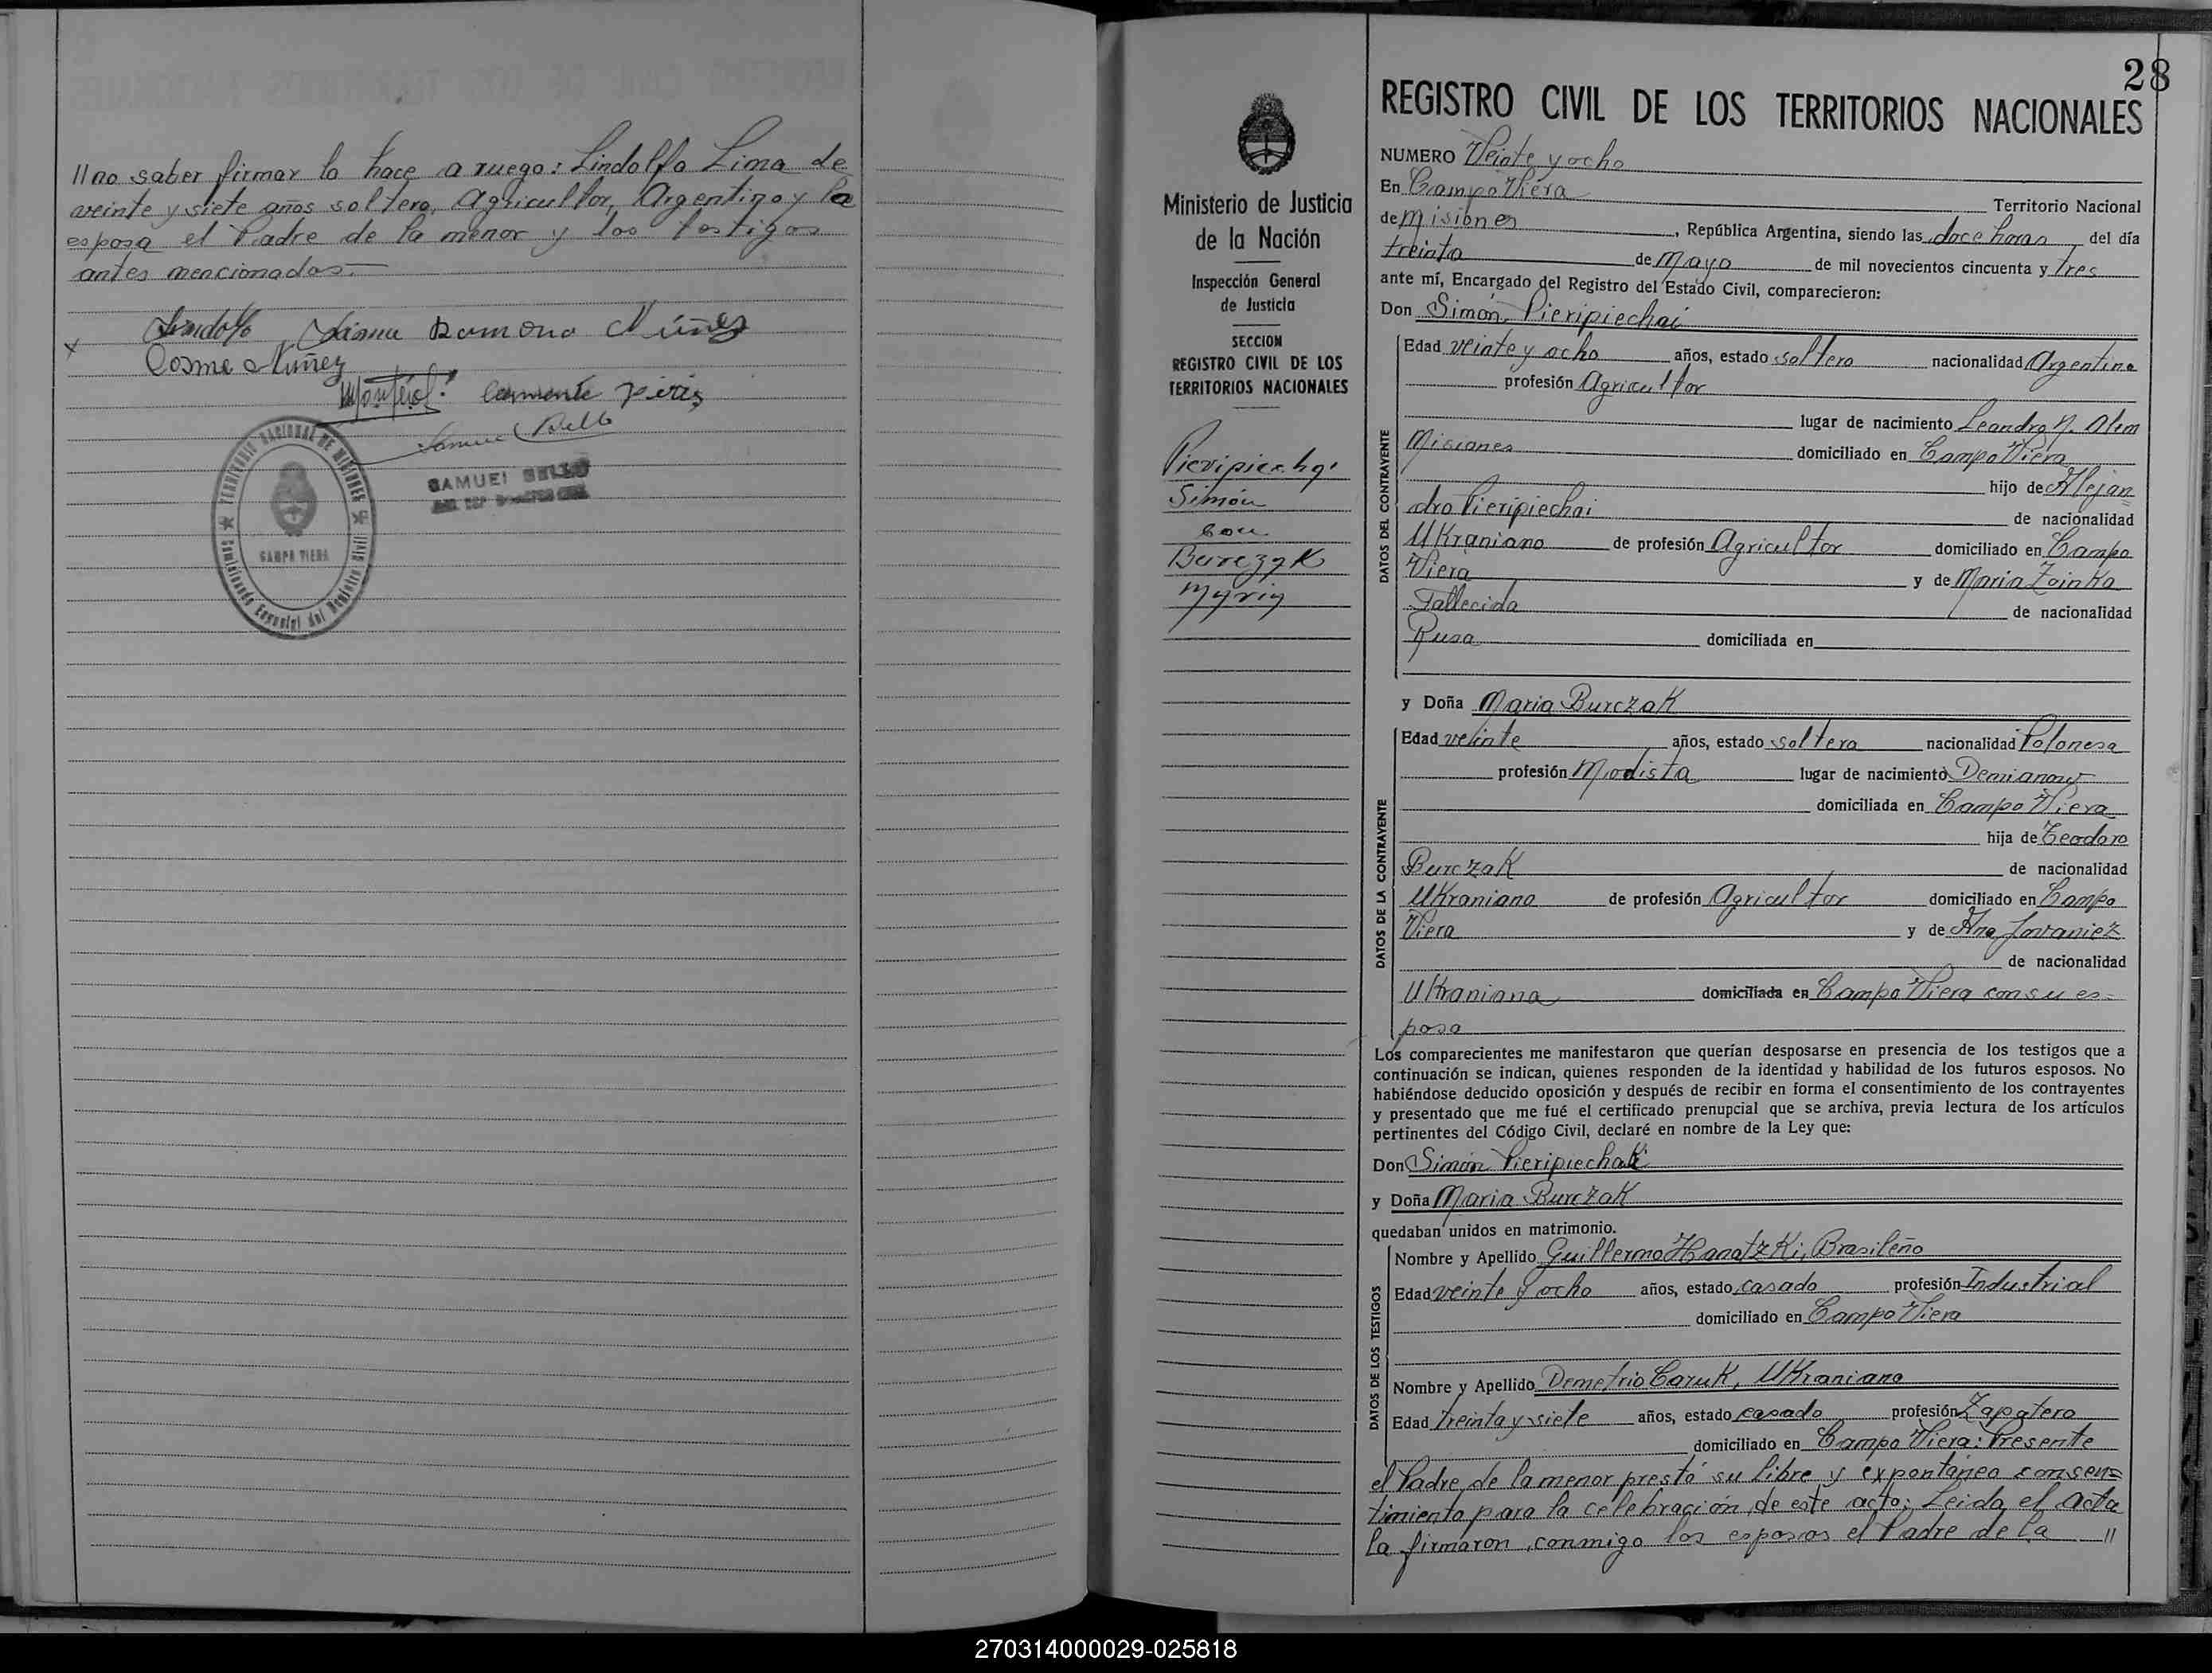 // no saber firmar lo hace a ruego: Lindolfo Lima de
veinte y siete años soltero, Agricultor, Argentino y la
esposa el Padre de la menor y los testigos
antes mencionados.—
Lindolfo Lima Ramona Núñez
Cosme Núñez
Samuel Bello
TERRITORIO NACIONAL DE MISIONES
CAMPO VIERA
SAMUEL BELLO
28
REGISTRO CIVIL DE LOS TERRITORIOS NACIONALES
Ministerio de Justicia
de la Nación
Inspección General
de Justicia
SECCION
REGISTRO CIVIL DE LOS
TERRITORIOS NACIONALES
Pieripiechai
Simón
con
Burczak
María
NUMERO Veinte y ocho
En Campo Viera Territorio Nacional
de Misiones, República Argentina, siendo las doce horas del día
treinta de Mayo de mil novecientos cincuenta y tres
ante mí, Encargado del Registro del Estado Civil, comparecieron:
Don Simón Pieripiechai
DATOS DEL CONTRAYENTE
Edad veinte y ocho años, estado soltero nacionalidad Argentino
profesión Agricultor
lugar de nacimiento Leandro N. Alem
Misiones domiciliado en Campo Viera
hijo de Alejan
dro Pieripiechai de nacionalidad
Ukraniano de profesión Agricultor domiciliado en Campo
Viera y de Maria Zainka
Fallecida de nacionalidad
Rusa domiciliada en
y Doña Maria Burczak
DATOS DE LA CONTRAYENTE
Edad veinte años, estado soltera nacionalidad Polonesa
profesión Modista lugar de nacimiento Demianow
domiciliada en Campo Viera
hija de Teodoro
Burczak de nacionalidad
Ukraniano de profesión Agricultor domiciliado en Campo
Viera y de Ana
de nacionalidad
Ukraniana domiciliada en Campo Viera con su es-
poso
Los comparecientes me manifestaron que querían desposarse en presencia de los testigos que a
continuación se indican, quienes responden de la identidad y habilidad de los futuros esposos. No
habiéndose deducido oposición y después de recibir en forma el consentimiento de los contrayentes
y presentado que me fué el certificado prenupcial que se archiva, previa lectura de los artículos
pertinentes del Código Civil, declaré en nombre de la Ley que:
Don Simón Pieripiechai
y Doña Maria Burczak
quedaban unidos en matrimonio.
DATOS DE LOS TESTIGOS
Nombre y Apellido Guillermo Hanatzki, Brasileño
Edad veinte y ocho años, estado casado profesión Industrial
domiciliado en Campo Viera
Nombre y Apellido Demetrio Caruk, Ukraniano
Edad treinta y siete años, estado casado profesión Zapatero
domiciliado en Campo Viera: Presente
el Padre de la menor prestó su libre y expontáneo consen=
timiento para la celebración de este acto: Leida el acta
la firmaron conmigo los esposos el Padre de la //
270314000029-025818